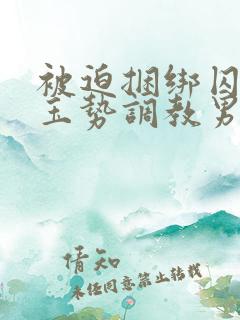 被迫捆绑囚
玉势調教男
情知
未经同意禁止转载